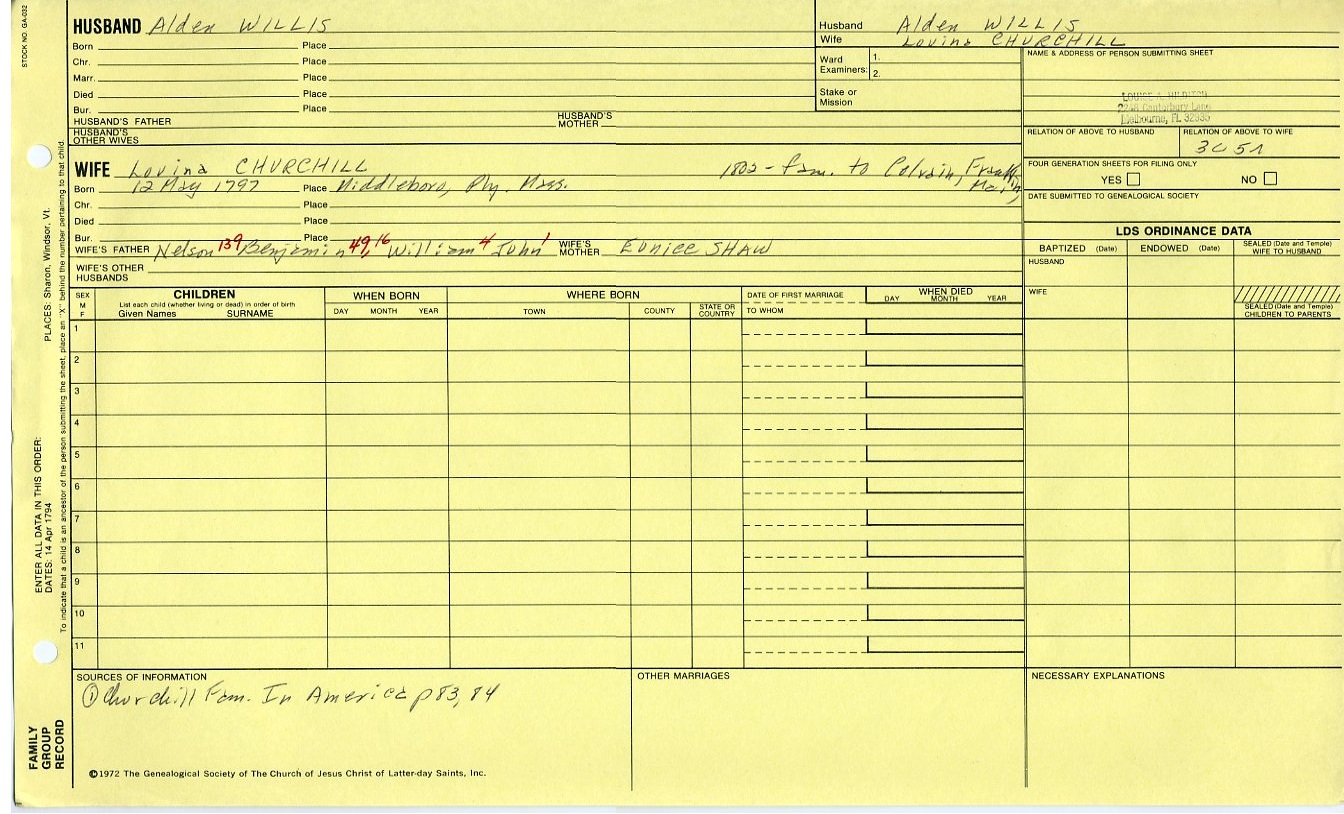 STOCK NO. GA-032
HUSBAND Alden WILLIS
Born Place
Chr. Place
Marr. Place
Died Place
Bur. Place
HUSBAND'S FATHER HUSBAND'S MOTHER
HUSBAND'S OTHER WIVES
Husband Alden WILLIS
Wife Lovina CHURCHILL
Ward Examiners: 1.
2.
Stake or Mission
NAME & ADDRESS OF PERSON SUBMITTING SHEET
LOUISE A.
2248 Canterbury Lane
Melbourne, FL 32935
RELATION OF ABOVE TO HUSBAND RELATION OF ABOVE TO WIFE
3C 5R
FOUR GENERATION SHEETS FOR FILING ONLY
YES NO
DATE SUBMITTED TO GENEALOGICAL SOCIETY
WIFE Lovina CHURCHILL 1802 - fam. to Colrain, Franklin,
Born 12 May 1797 Place Middleboro, Ply. Mass.
Chr. Place
Died Place
Bur. Place
WIFE'S FATHER Nelson 139 Benjamin 49, 16 William 4 John 1 WIFE'S MOTHER Eunice SHAW
WIFE'S OTHER HUSBANDS
LDS ORDINANCE DATA
BAPTIZED (Date) ENDOWED (Date) SEALED (Date and Temple) WIFE TO HUSBAND
HUSBAND
WIFE
SEALED (Date and Temple) CHILDREN TO PARENTS
SEX M F
CHILDREN
List each child (whether living or dead) in order of birth
Given Names SURNAME
WHEN BORN
DAY MONTH YEAR
WHERE BORN
TOWN COUNTY STATE OR COUNTRY
DATE OF FIRST MARRIAGE
TO WHOM
WHEN DIED
DAY MONTH YEAR
1
2
3
4
5
6
7
8
9
10
11
SOURCES OF INFORMATION
① Churchill Fam. In America p83, 84
OTHER MARRIAGES
NECESSARY EXPLANATIONS
©1972 The Genealogical Society of The Church of Jesus Christ of Latter-day Saints, Inc.
FAMILY GROUP RECORD
ENTER ALL DATA IN THIS ORDER:
DATES: 14 Apr 1794
PLACES: Sharon, Windsor, Vt.
To indicate that a child is an ancestor of the person submitting the sheet, place an "X" behind the number pertaining to that child.